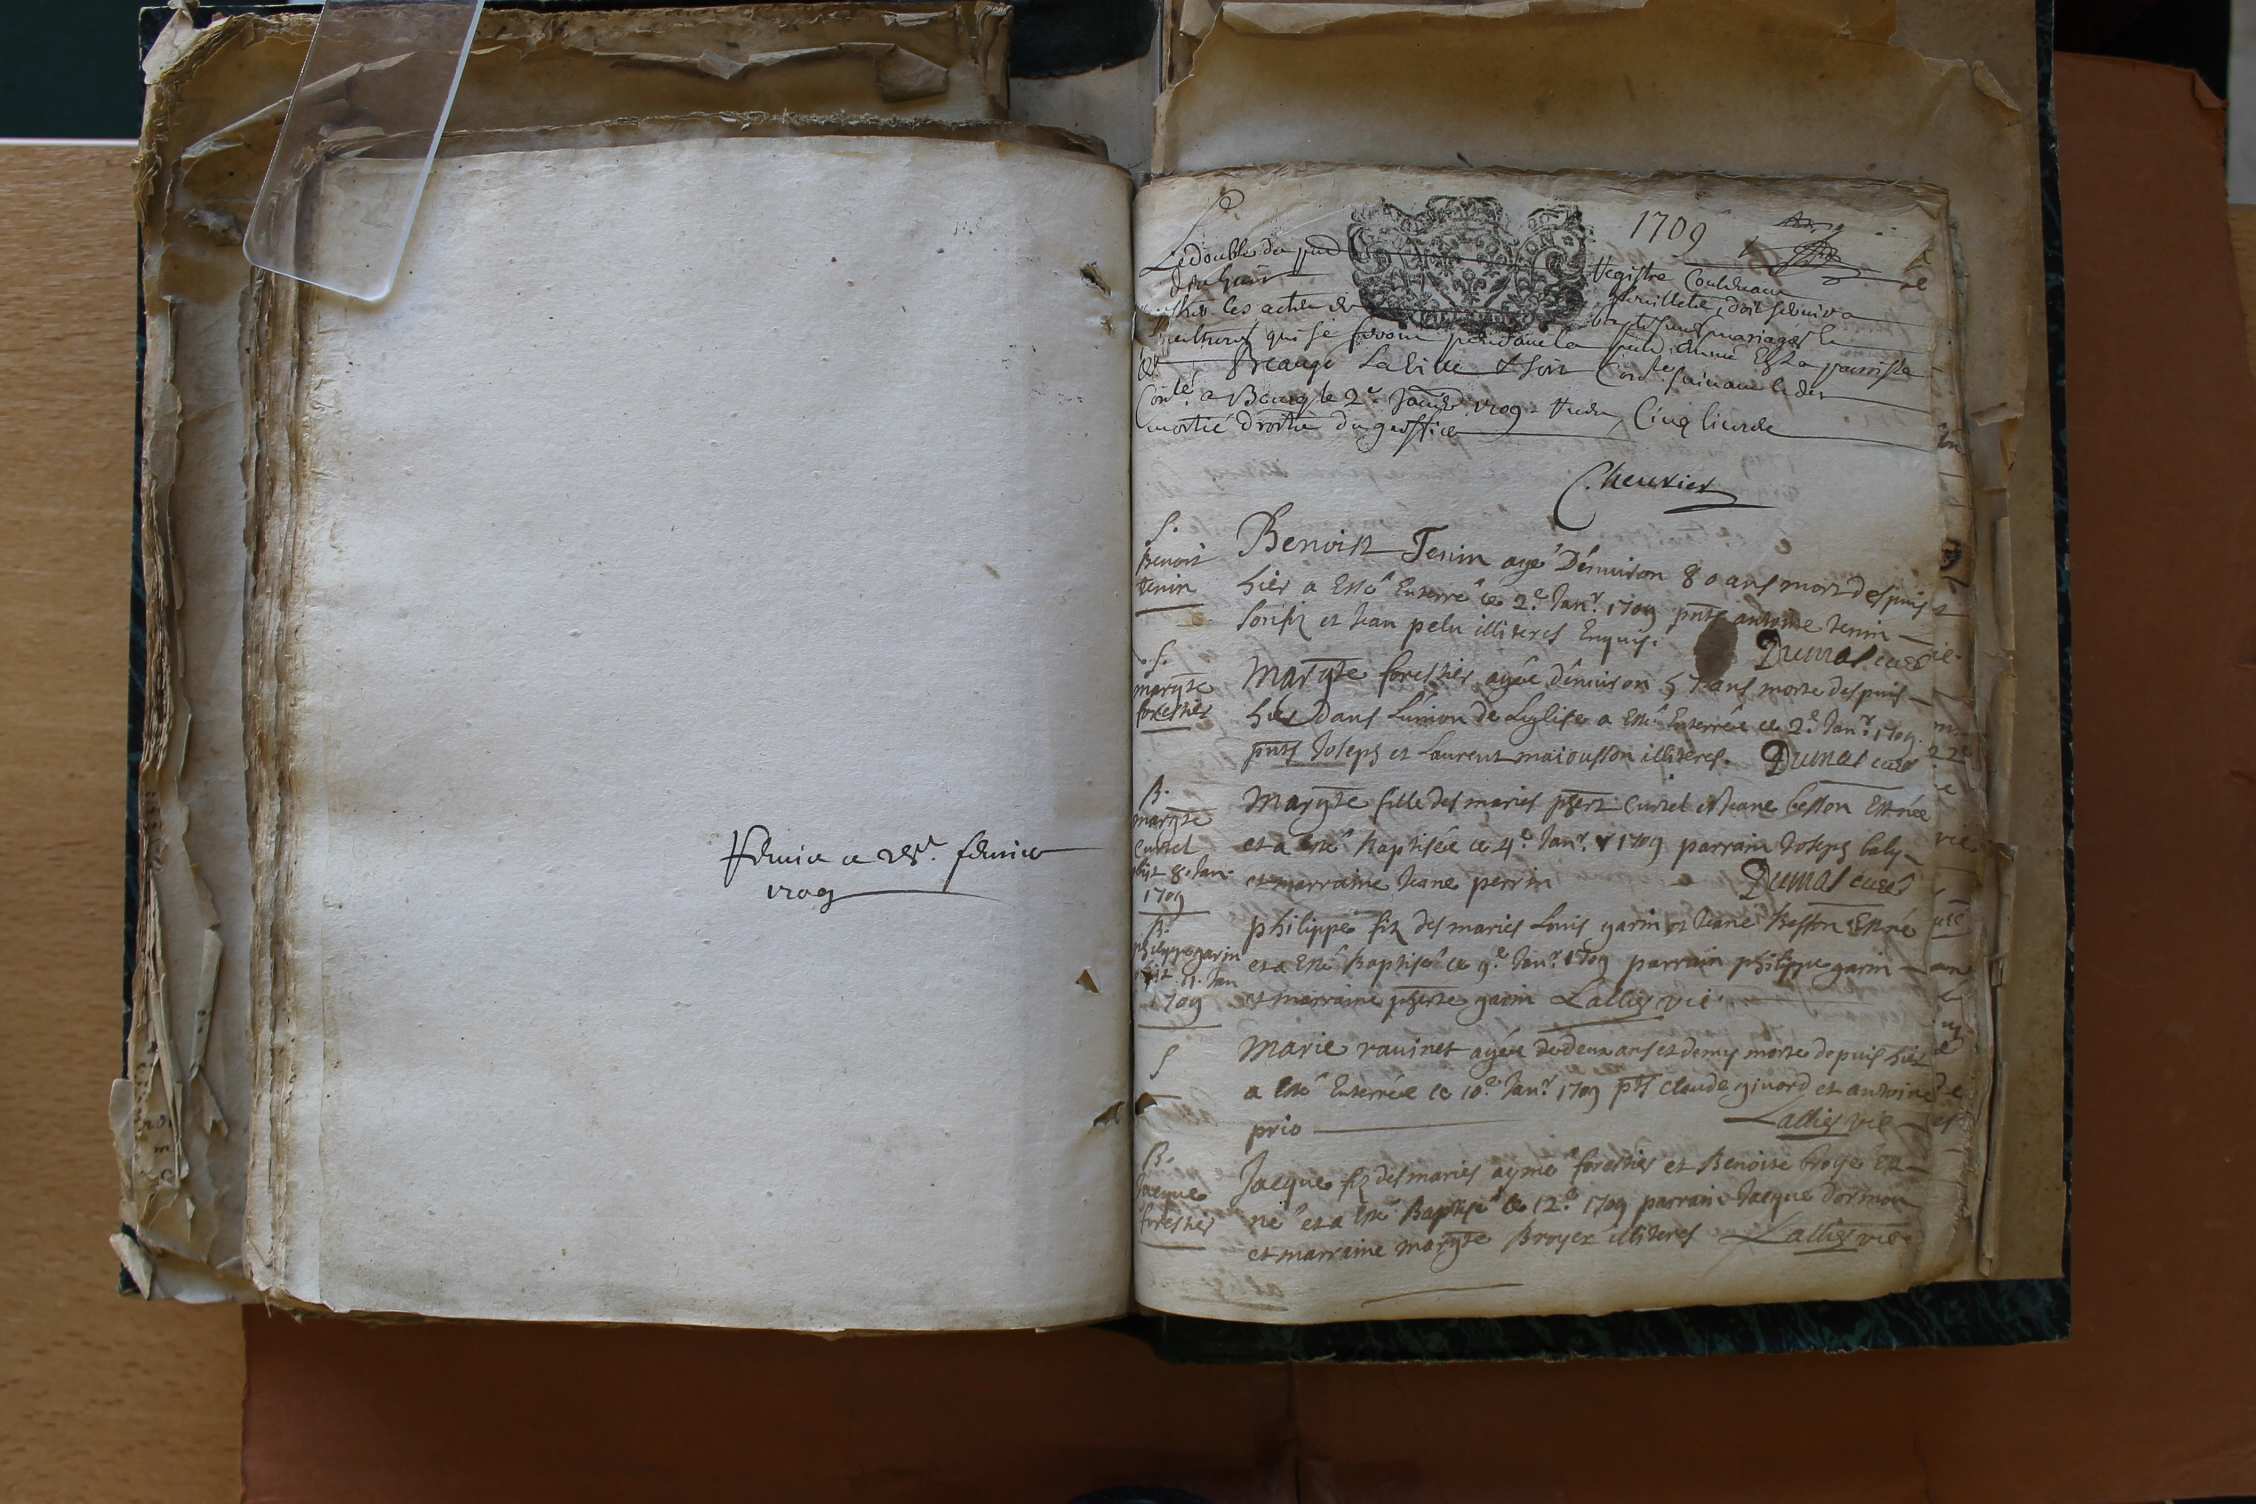 Remis ce 28e. febvrier
1709
1709
Le double du pnt Registre Contenant
feuillets, doit servir a
les actes de baptesmes mariages et
qui se feront pendant la pnte année Es La parroisse
Beaugé La ville & son suivant led.
a Bourg le 2e. Janv. 1709. Cinq livres
moitié droits du greffier
Cheurier
S.
Benoist
tenin
Benoist Tenin agé D'enuiron 80 ans mort despuis
hier a Esté Enterré ce 2e. Janr. 1709 pnts antoine tenin
son fiz et Jean pelu illiteres Enquis. Dumas curé
S.
margte
forestier
Margte forestier agée d'enuiron ans morte despuis
hier dans L'union de Leglise a Esté Enterrée ce 2e. Janr. 1709.
pnts Joseph et Laurent maiousson illiteres. Dumas curé
B.
margte
Curtel
obijt 8. Jan.
1709
Margte fille des mariés phbert Curtel et Jeane besson Est née
et a Esté Baptisée ce 4e. Janr. 1709 parrain Joseph baly
et marraine Jeane perrin Dumas curé
B.
philippe garin
obijt 11. Jan
1709
philippe fiz des mariés Louis garin et Jeane Besson Est né
et a Esté Baptisé ce 9e. Janr. 1709 parrain philippe garin
et marraine phberte garin Lallier vic.
S
Marie rauinet agée de deux ans et demy morte depuis hier
a Esté Enterrée ce 10e. Janr. 1709 pts claude givord et antoine
prio Lallier vic
B.
Jacque
forestier
Jacque fiz des mariés aymé forestier et Benoite broyé Est
né et a Esté Baptisé ce 12e. 1709 parrain Jacque dormou
et marraine margte Broyer illiteres Lallier vic.